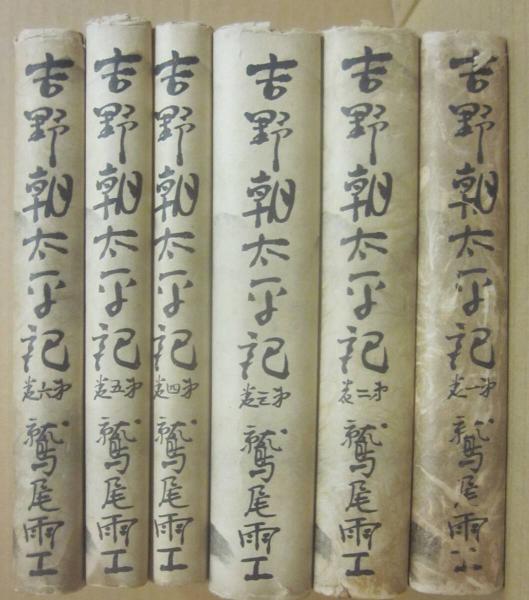 吉野朝太平記
第一巻
鷲尾雨工
吉野朝太平記
第二巻
鷲尾雨工
吉野朝太平記
第三巻
鷲尾雨工
吉野朝太平記
第四巻
鷲尾雨工
吉野朝太平記
第五巻
鷲尾雨工
吉野朝太平記
第六巻
鷲尾雨工